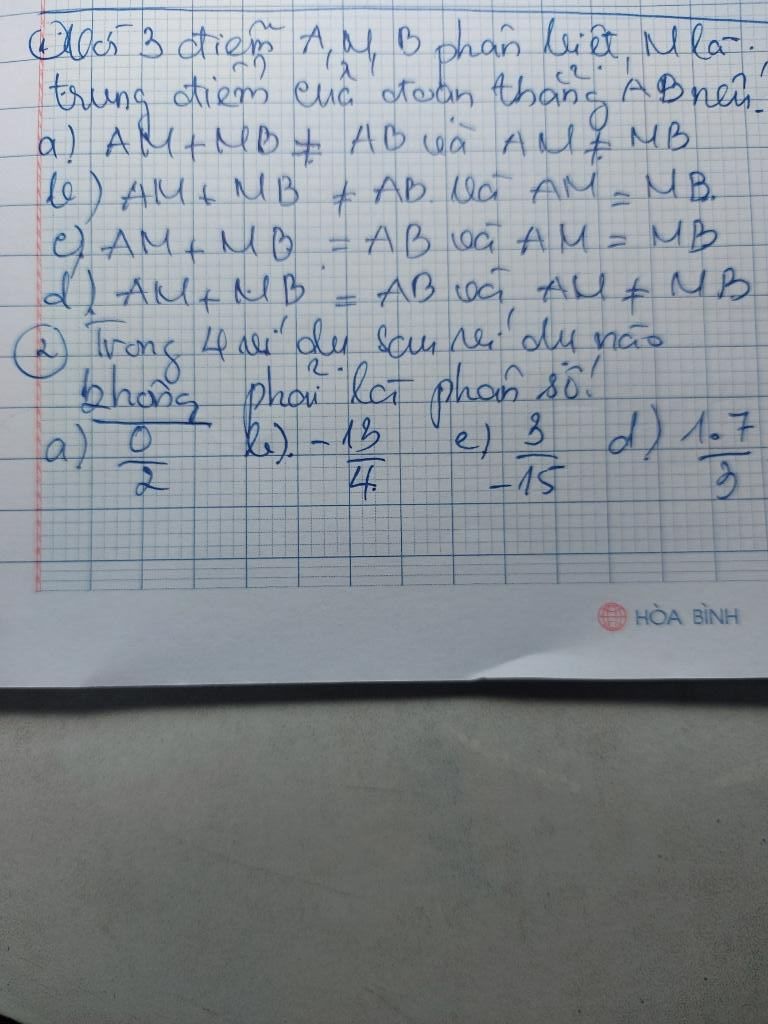 ① Với 3 điểm A, M, B phân biệt, M là
trung điểm của đoạn thẳng AB nếu!
a) AM + MB ≠ AB và AM ≠ MB
b) AM + MB ≠ AB và AM = MB.
c) AM + MB = AB và AM = MB
d) AM + MB = AB và AM ≠ MB
② Trong 4 ví dụ sau ví dụ nào
không phải là phân số!
a) 0/2 b). -13/4 c) 3/-15 d) 1.7/3
HÒA BÌNH